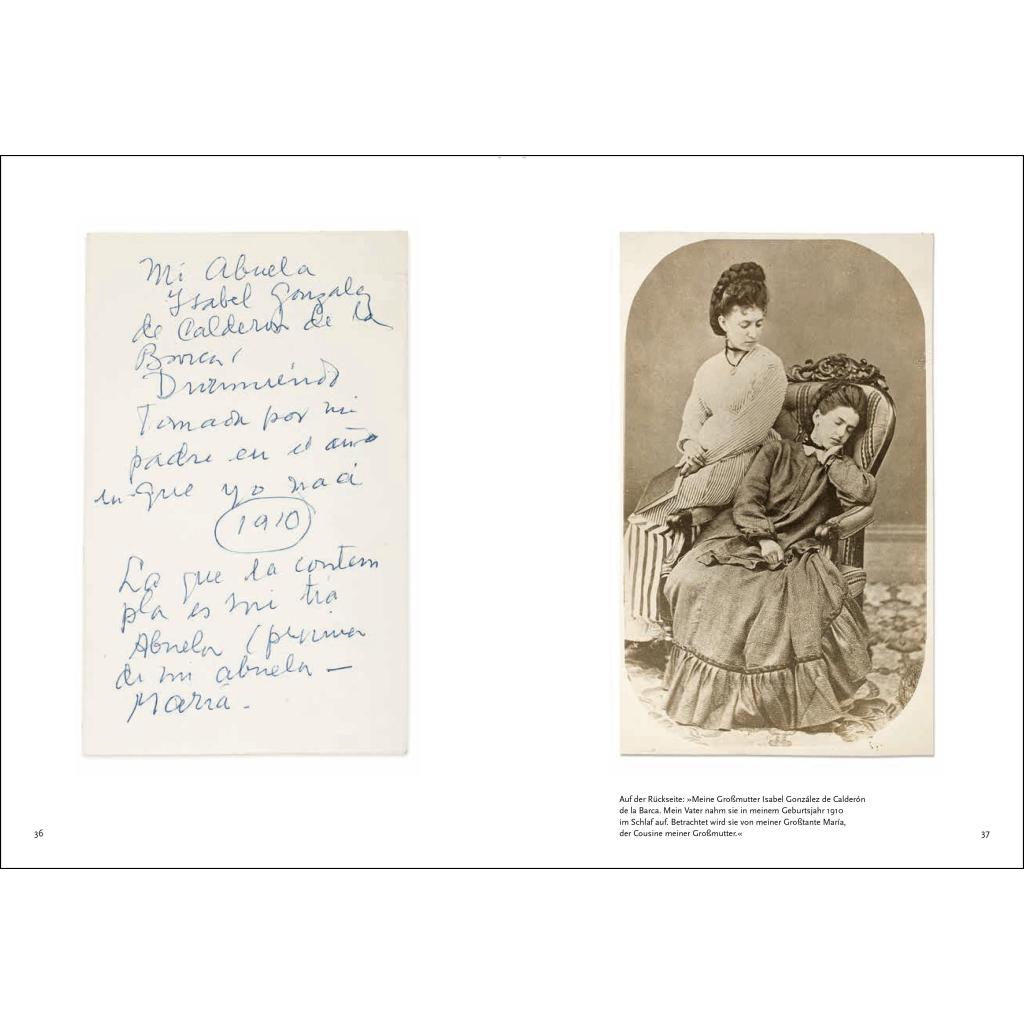 Mi Abuela
Ysabel Gonzalez
de Calderon de la
Barca
Durmiendo
Tomada por mi
padre en el año
en que yo nací
1910
La que la contem
pla es mi tia
Abuela (prima
de mi abuela —
María.
Auf der Rückseite: »Meine Großmutter Isabel González de Calderón
de la Barca. Mein Vater nahm sie in meinem Geburtsjahr 1910
im Schlaf auf. Betrachtet wird sie von meiner Großtante María,
der Cousine meiner Großmutter.«
36
37